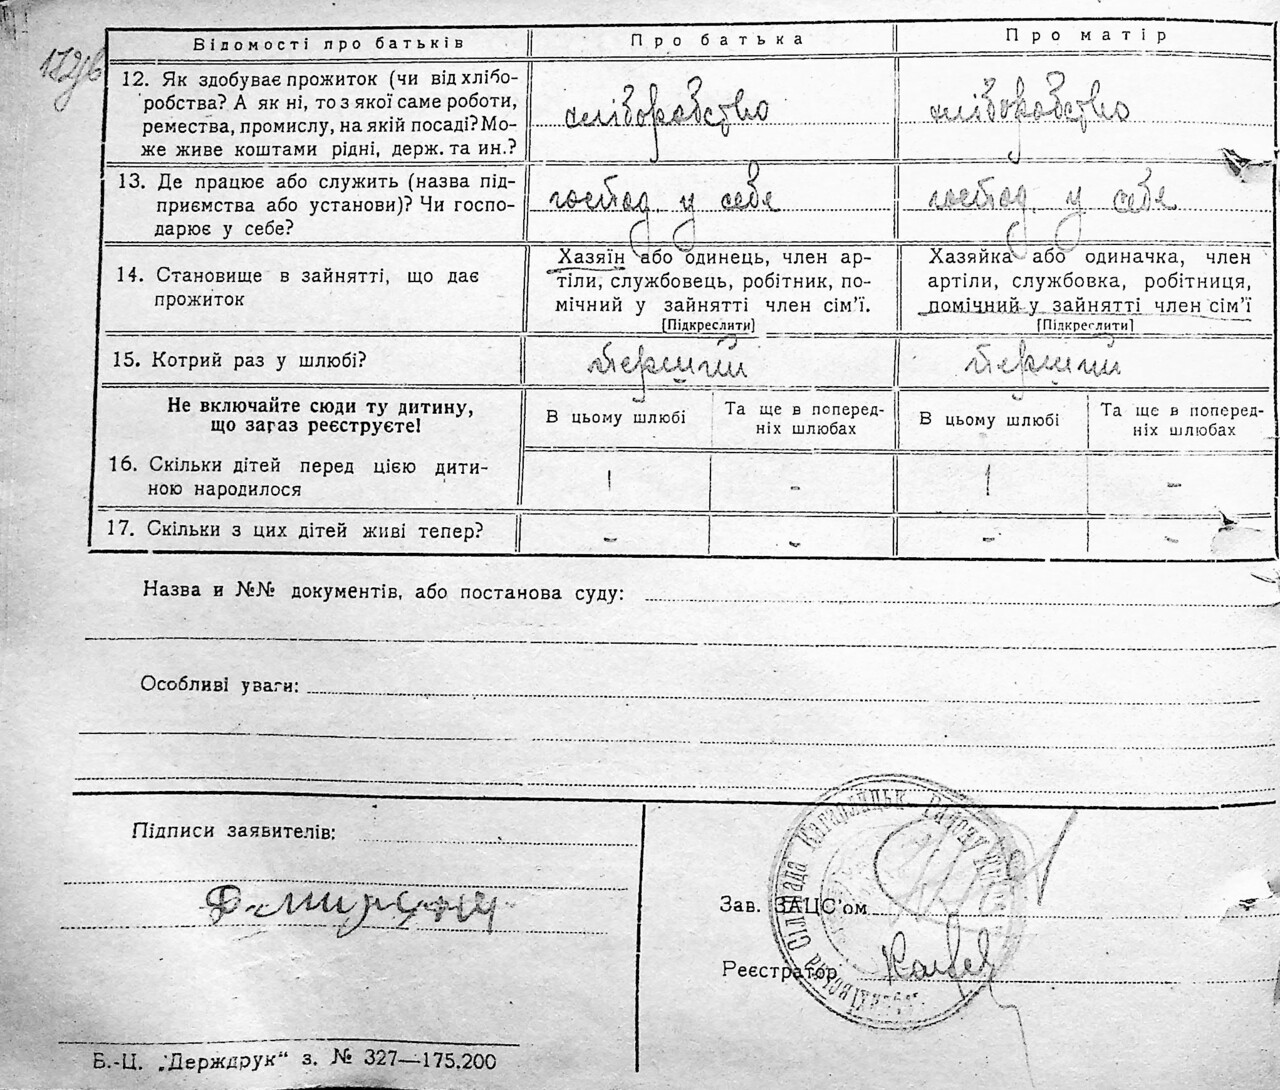 Відомості про батьків
Про батька
Про матір
12. Як здобуває прожиток (чи від хлібо-
робства? А як ні, то з якої саме роботи,
ремества, промислу, на якій посаді? Мо-
же живе коштами рідні, держ. та ин.?
хліборобство
хліборобство
13. Де працює або служить (назва під-
приємства або установи)? Чи госпо-
дарює у себе?
господ. у себе
господ. у себе
14. Становище в зайнятті, що дає
прожиток
Хазяїн або одинець, член ар-
тіли, службовець, робітник, по-
мічний у зайнятті член сім'ї.
[Підкреслити]
Хазяйка або одиначка, член
артіли, службовка, робітниця,
помічний у зайнятті член сім'ї
[Підкреслити]
15. Котрий раз у шлюбі?
перший
перший
Не включайте сюди ту дитину,
що зараз реєструєте!
В цьому шлюбі
Та ще в поперед-
ніх шлюбах
В цьому шлюбі
Та ще в поперед-
ніх шлюбах
16. Скільки дітей перед цією дити-
ною народилося
1
-
1
-
17. Скільки з цих дітей живі тепер?
-
-
-
-
Назва и №№ документів, або постанова суду:
Особливі уваги:
Підписи заявителів:
Зав. ЗАЦС'ом
Реєстратор
Сільрада Кагарлицьк. Району
Б.-Ц. „Держдрук" з. № 327—175.200